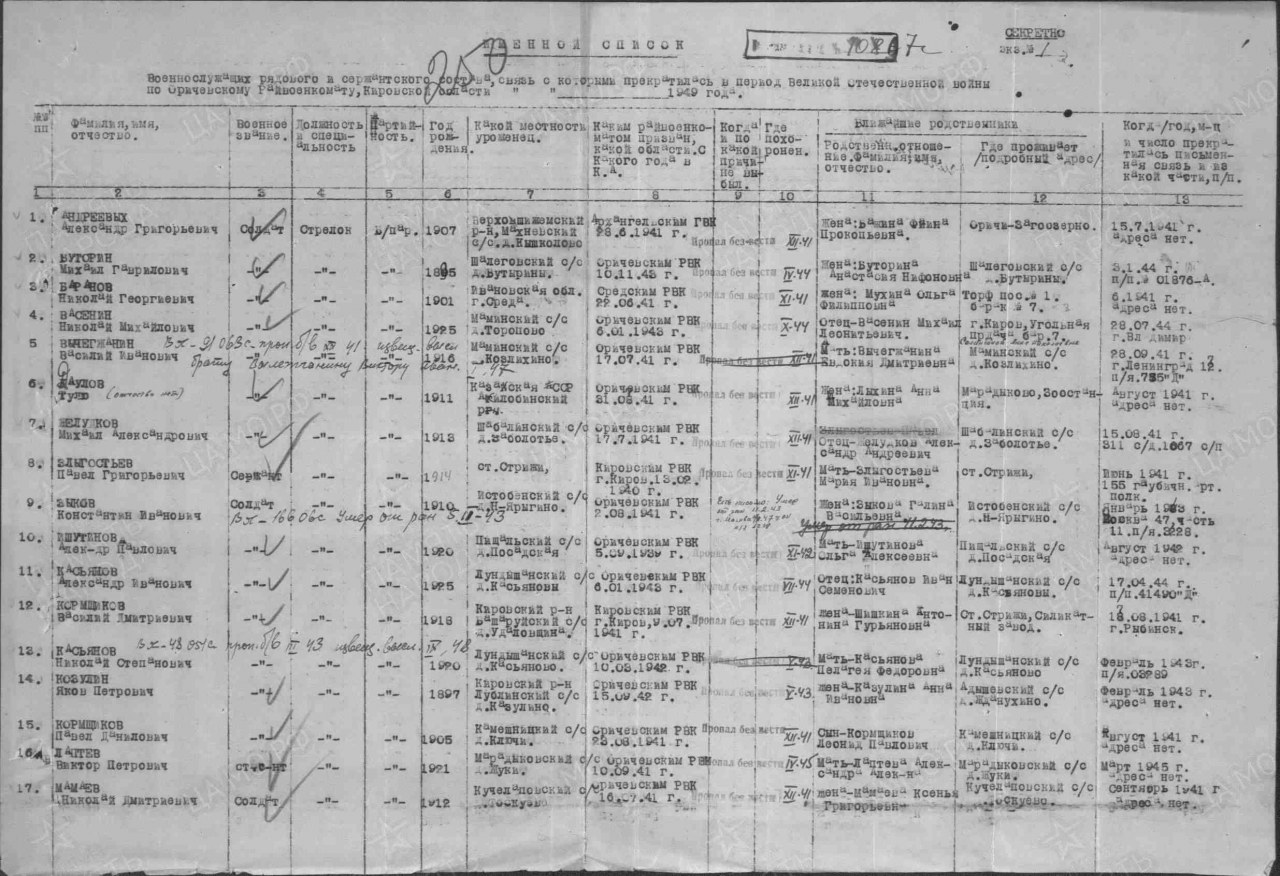 ИМЕННОЙ СПИСОК
СЕКРЕТНО
экз.№ 1
Военнослужащих рядового и сержантского состава, связь с которыми прекратилась в период Великой Отечественной войны
по Оричевскому Райвоенкомату, Кировской области " " 1949 года.
№№ пп Фамилия, имя, отчество. Военное звание. Должность и специальность Партийность. Год рождения. Какой местности уроженец. Каким райвоенкоматом призван, какой области. С какого года в К.А. Когда и по какой причине выбыл. Где похоронен. Ближайшие родственники
Родственн. отношение. Фамилия, имя, отчество. Где проживает /подробный адрес/ Когда/год, м-ц и число прекратилась письменная связь и из какой части, п/п.
1 2 3 4 5 6 7 8 9 10 11 12 13
1. АНДРЕЕВЫХ Верхошижемский Архангельским ГВК Жена:Вашина
Александр Григорьевич Солдат Стрелок Б/пар. 1907 р-н, Махневский 28.6.1941 г. Пропал без вести XII-41 Прокопьевна. Оричи-Заготзерно. 15.7.1941 г.
с/с.д.Кышколово адреса нет.
2. БУТОРИН Шалеговский с/с Оричевским РВК Жена:Буторина Шалеговский с/с 3.1.44 г.
Михаил Гаврилович -"- -"- -"- д.Бутырины. 10.11.43 г. Пропал без вести IV-44 Анастасия Нифоновна д.Бутырины. п/п.№ 01876-А.
3. БАРАНОВ Ивановская обл. Средским РВК Жена: Мухина Ольга Торф пос.№ 1. 6.1941 г.
Николай Георгиевич -"- -"- -"- 1901 г.Среда. 22.06.41 г. Пропал без вести XI-41 Филипповна барак № 7. адреса нет.
4. ВАСЕНИН Маминский с/с Оричевским РВК Отец-Васенин Михаил г.Киров, Угольная 28.07.44 г.
Николай Михайлович -"- -"- -"- 1925 д.Торопово 6.01.1943 г. Пропал без вести X-44 Леонитьевич.
5 ВЫЧЕГЖАНИН Маминский с/с Оричевским РВК Мать:Вычегжанина Маминский с/с 28.09.41 г.
Василий Иванович -"- -"- 1916 д.Козлихино. 17.07.41 г. Пропал без вести XII-41 Евдокия Дмитриевна д.Козлихино. г.Ленинград 12.
6. ДАУЛОВ Казахская АССР Оричевским РВК Жена:Лыхина Анна Марадыково, Зоостанция. Август 1941 г.
-"- -"- -"- 1911 31.08.41 г. Пропал без вести XII-41 Михайловна адреса нет.
7. ЖЕЛУДКОВ Шабалинский с/с Оричевским РВК Шабалинский с/с 15.08.41 г.
Михаил Александрович -"- -"- -"- 1913 д.Заболотье. 17.7.1941 г. Пропал без вести XII-41 Отец-Желудков Александр Андреевич д.Заболотье. 311 с/д.1067 с/п
8. ЗЛЫГОСТЬЕВ ст.Стрижи, Кировским РВК Мать-Злыгостьева ст.Стрижи, Июнь 1941 г.
Павел Григорьевич Сержант -"- -"- 1914 г.Киров, 13.02.1940 г. Пропал без вести XI-41 Мария Ивановна. 155 гаубичн. арт. полк.
9. ЗЫКОВ Солдат Истобенский с/с Оричевским РВК Жена:Зыкова Галина Истобенский с/с
Константин Иванович -"- -"- 1910 д.Н-Ярыгино. 2.08.1941 г. Васильевна д.Н-Ярыгино. Москва 47, часть
Вх-16606с Умер от ран 11.п/я.3228.
10. ИШУТИНОВ Пищальский с/с Оричевским РВК Мать-Ишутинова Пищальский с/с Август 1942 г.
Алек-др Павлович -"- -"- -"- 1920 д.Посадская 5.09.1939 г. Пропал без вести XI-42 Ольга Алексеевна д.Посадская адреса нет.
11. КАСЬЯНОВ Лундышанский с/с Оричевским РВК Отец:Касьянов Иван Лундышанский с/с 17.04.44 г.
Александр Иванович -"- -"- -"- 1925 д.Касьяновы 6.01.1943 г. Пропал без вести VII-44 Семенович д.Касьяновы. п/п.41490"Д"
12. КОРМЩИКОВ Кировский р-н Кировским РВК Жена-Шишкина Антонина Гурьяновна Ст.Стрижи, Силикатный завод. 18.08.1941 г.
Василий Дмитриевич -"- -"- -"- 1918 д.Удаловщина. г.Киров, 9.07.1941 г. Пропал без вести XII-41 г.Рыбинск.
13. КАСЬЯНОВ Лундышанский с/с Оричевским РВК Мать-Касьянова Лундышанский с/с Февраль 1943г.
Николай Степанович -"- -"- -"- 1920 д.Касьяново. 10.03.1942 г. Пелагея Федоровна д.Касьяново п/я.03289
14. КОЗУЛИН Кировский р-н Оричевским РВК Жена-Казулина Анна Адышевский с/с Февраль 1943 г.
Яков Петрович -"- -"- -"- 1897 Лублинский с/с 15.09.42 г. Пропал без вести V-43 Ивановна д.Жданухино. адреса нет.
д.Казулино.
15. КОРМЩИКОВ Камешницкий с/с Оричевским РВК Пропал без вести Сын-Кормщиков Камешницкий с/с Август 1941 г.
Павел Данилович -"- -"- -"- 1905 д.Ключи. 23.08.1941 г. XII-41 Леонид Павлович д.Ключи. адреса нет.
16. ЛАПТЕВ Марадыковский с/с Оричевским РВК Мать-Лаптева Александра Алек-на Марадыковский с/с Март 1945 г.
Виктор Петрович ст.с-нт -"- -"- 1921 д.Жуки. 10.09.41 г. Пропал без вести IV-45 д.Жуки. адреса нет.
17. МАМАЕВ Кучелаповский с/с Оричевским РВК Жена-Мамаева Ксенья Кучелаповский с/с Сентябрь 1941 г
Николай Дмитриевич Солдат -"- -"- 1912 16.07.41 г. Пропал без вести XII-41 Григорьевн адреса нет.